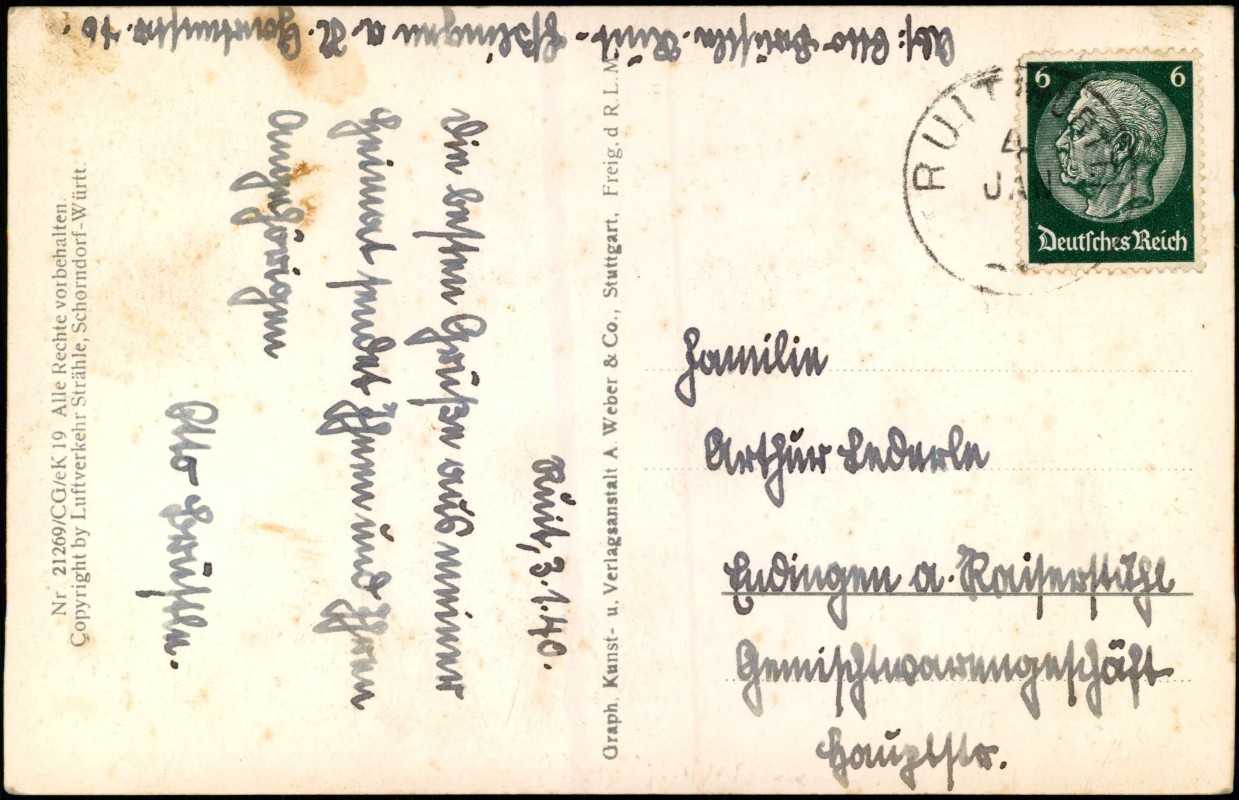 Abs: Otto Bräuchle. Ruit - Eßlingen a. N.
Ruit, 3.1.40.
Die besten Grüße aus meiner
Heimat sendet Ihnen und Ihren
Angehörigen
Otto Bräuchle.
Nr. 21269/CG/eK 19 Alle Rechte vorbehalten.
Copyright by Luftverkehr Strähle, Schorndorf-Württ.
Graph. Kunst- u. Verlagsanstalt A. Weber & Co., Stuttgart. Freig. d R.L.M.
6 6
Deutsches Reich
RUIT
4
JAN
Familie
Arthur Lederle
Endingen a. Kaiserstuhl
Gemischtwarengeschäft
Hauptstr.